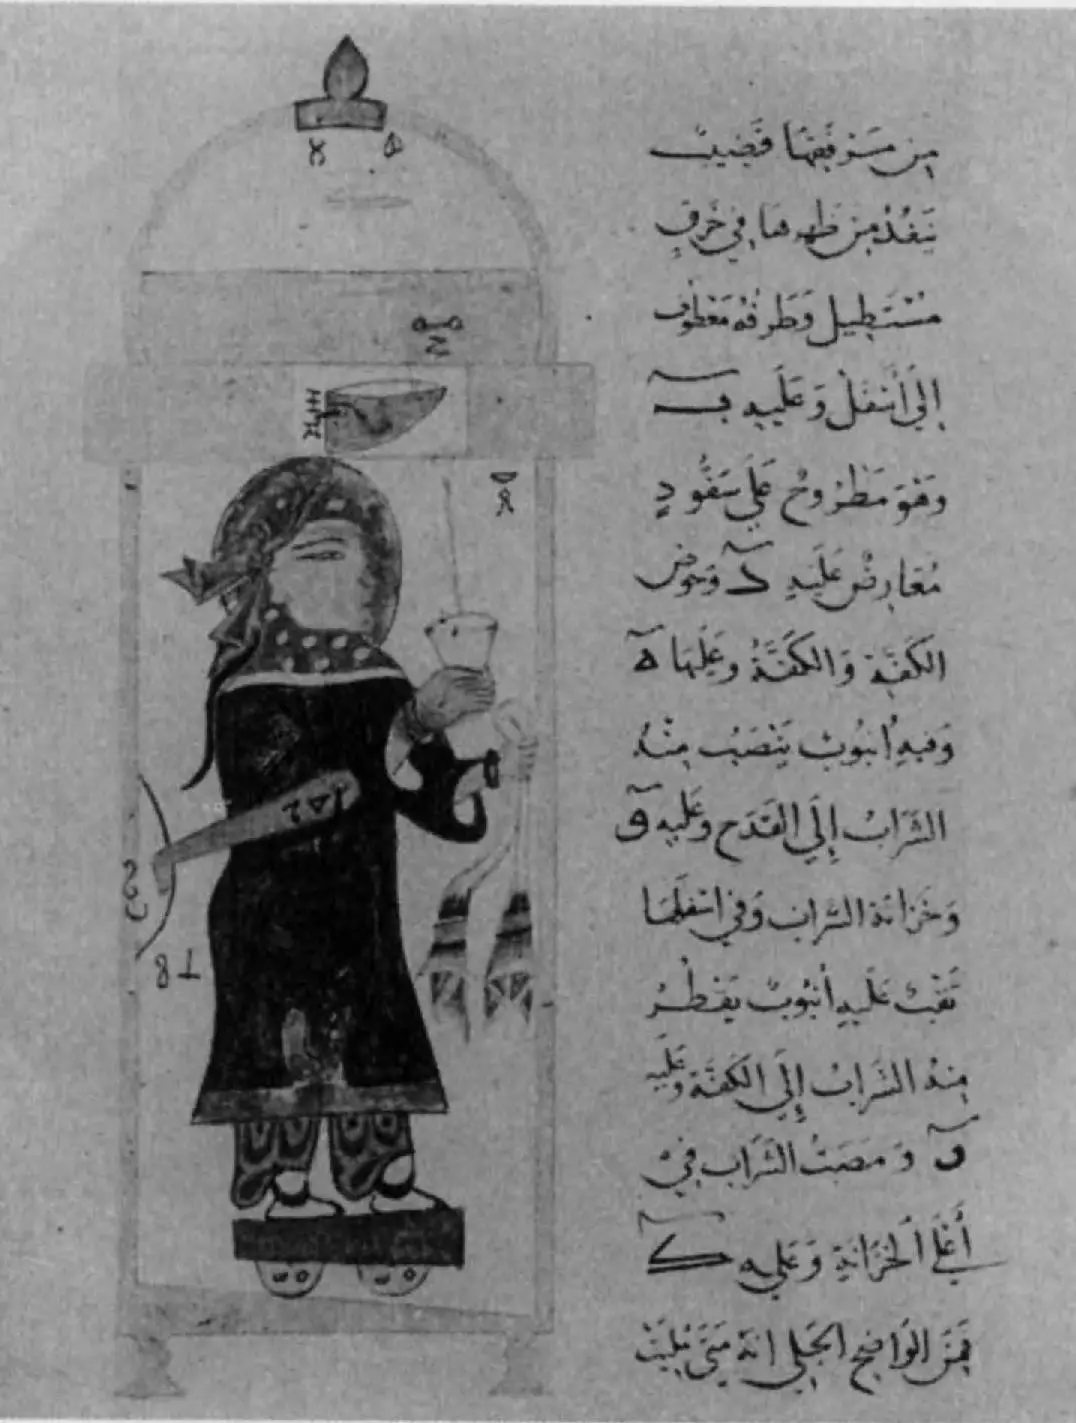 من مرفقها قضيبٌ
ينفذ من ظهرها في خرقٍ
مستطيل وطرفه معطوف
إلى أسفل وعليه
وهو مطروح على سفّودٍ
معارض عليه وحوض
الكفّة والكفّة وعليها
وفيه انبوب ينصب منه
الشراب إلى القدح وعليه
وخزانة الشراب وفي اسفلها
ثقب عليه أنبوبٌ يقطر
منه الشراب إلى الكفّة وعليه
و مصب الشراب في
أعلى الخزانة وعليه
فمن الواضح الجلي انه متى